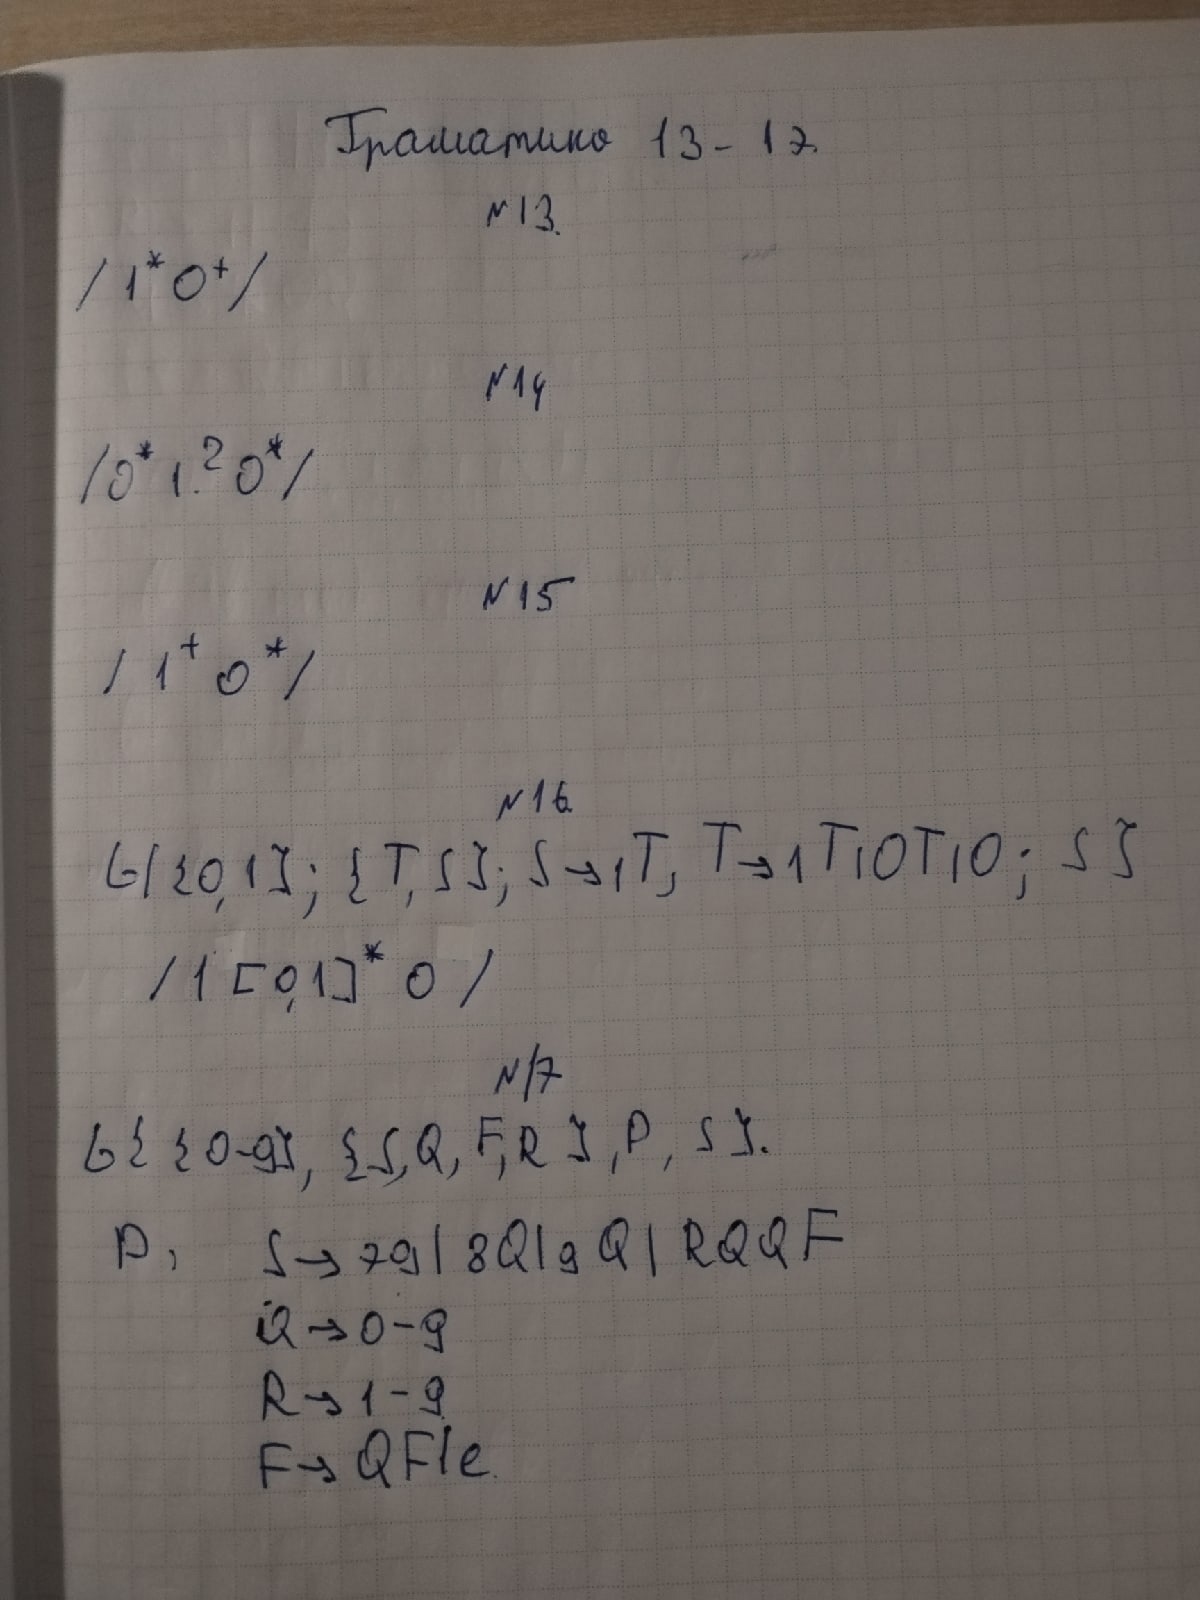 Граматика 13-17
№13.
/1*0+/
№14
/0*1.?0*/
№15
/1+0*/
№16
G{{0,1}; {T,S}; S→1T, T→1T|0T|0; S}
/1[0,1]*0/
№17
G{{0-9}, {S,Q,F,R}, P, S}.
P, S→79|8Q|9Q|RQQF
Q→0-9
R→1-9
F→QF|e.